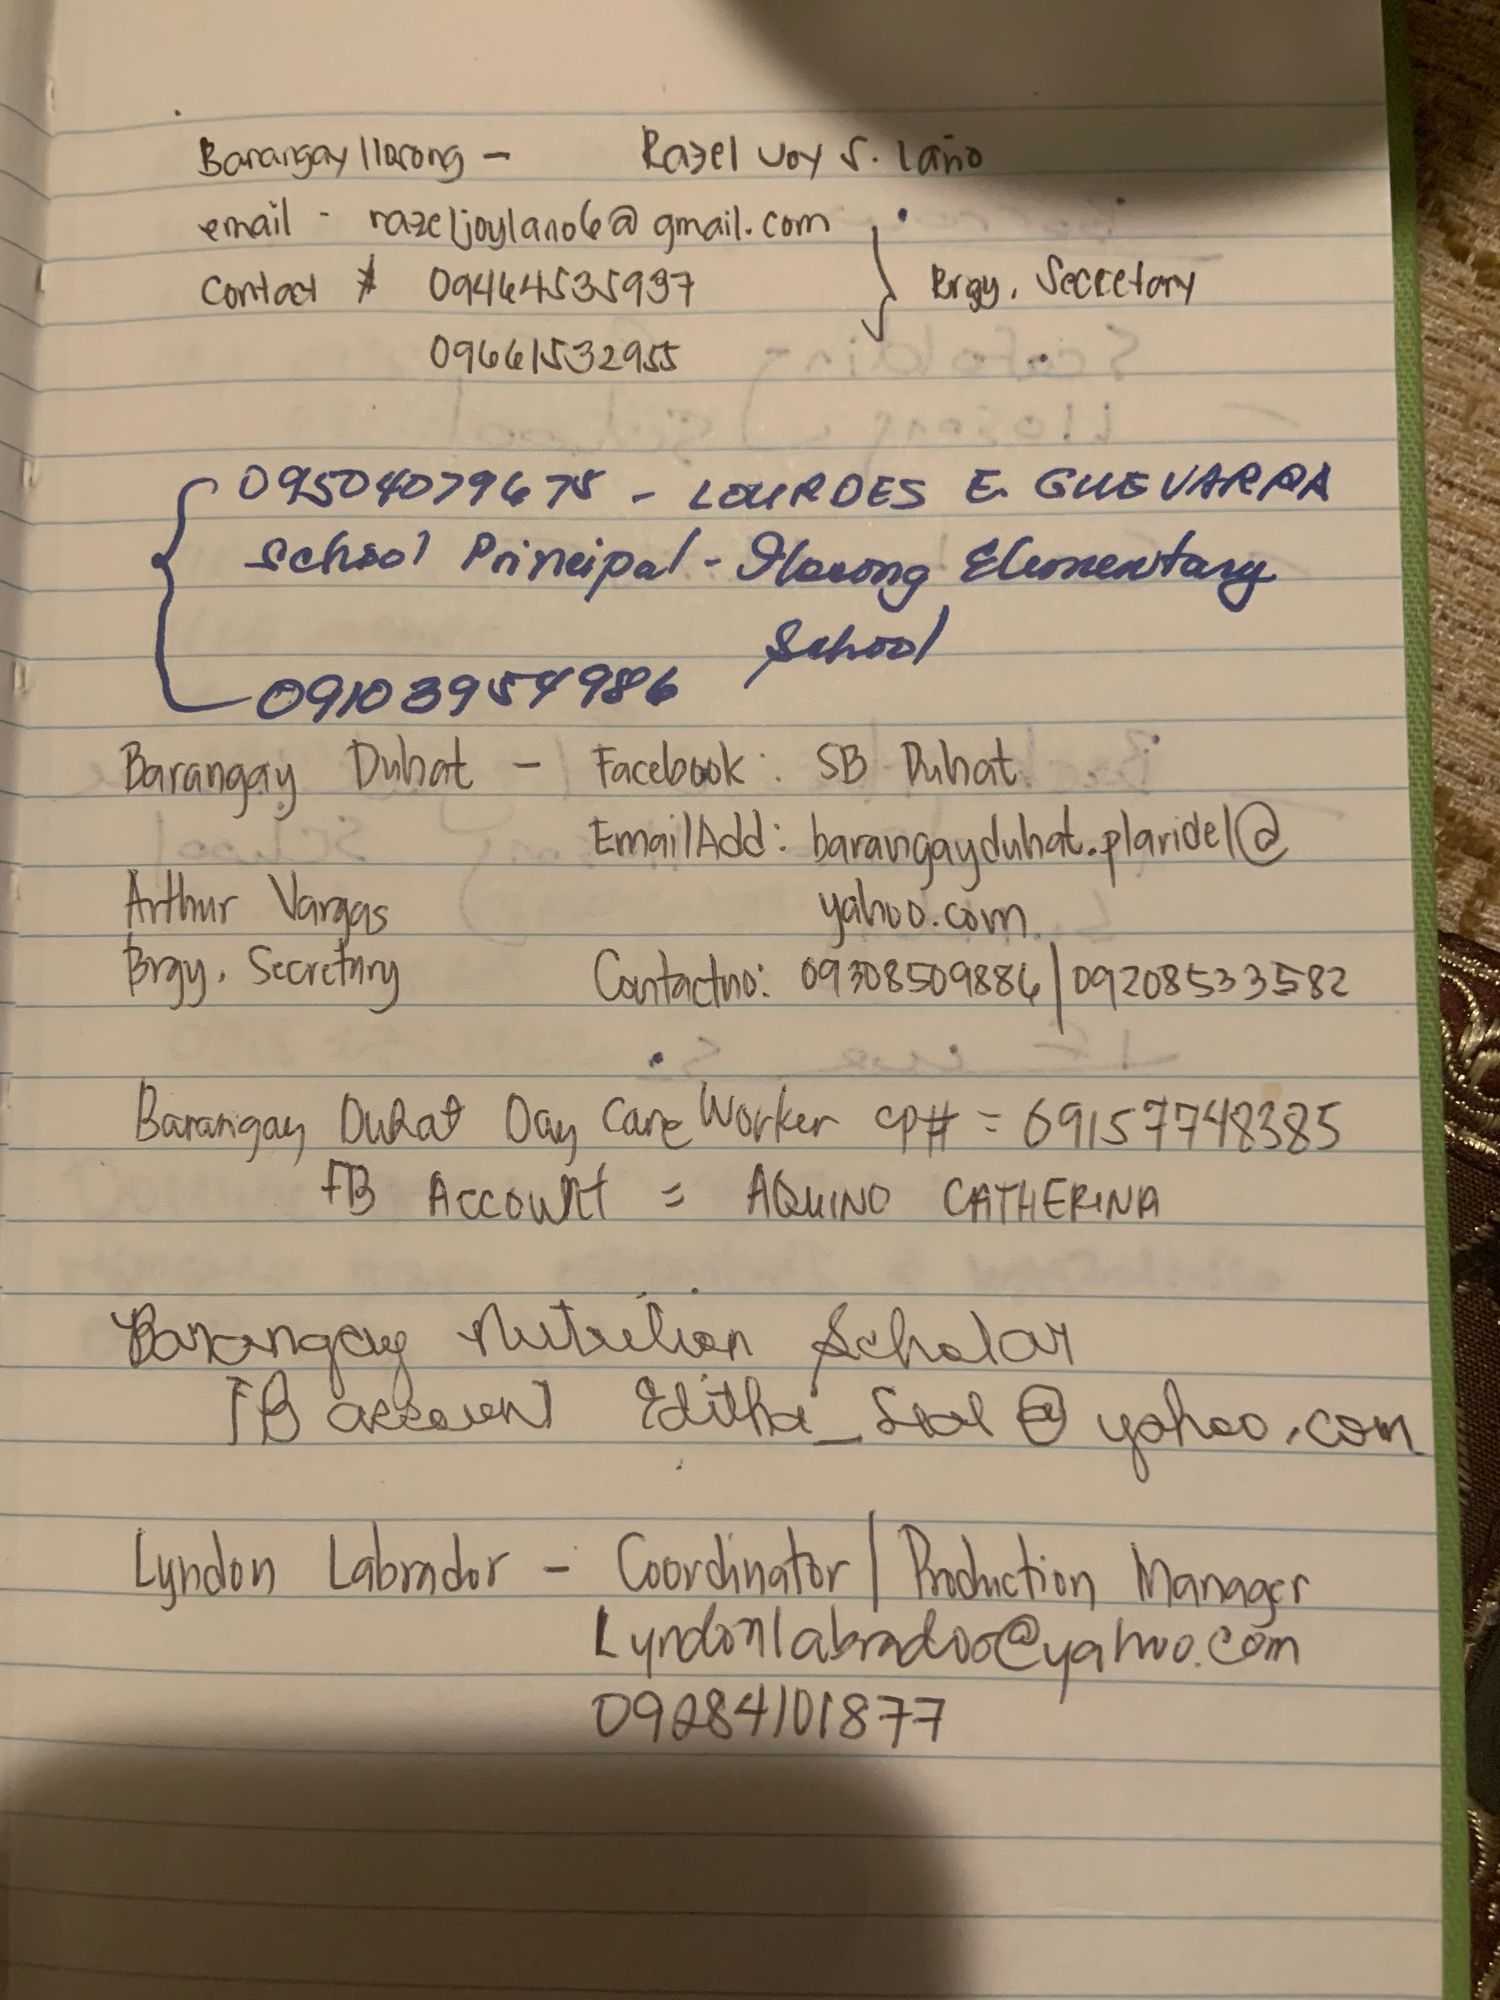 Barangay Ilosong - Razel Joy S. Laño
email - razeljoylano6@gmail.com
Contact # 09464535937 } Brgy. Secretary
09661532955
09504079675 - LOURDES E. GUEVARRA
School Principal - Ilosong Elementary
School
09103954986
Barangay Duhat - Facebook: SB Duhat
Email Add: barangayduhat.plaridel@
Arthur Vargas yahoo.com
Brgy. Secretary Contact no: 09308509886 | 09208533582
Barangay Duhat Day Care Worker cp# = 09157748385
FB Account = AQUINO CATHERINA
Barangay Nutrition Scholar
FB account Editha_@yahoo.com
Lyndon Labrador - Coordinator / Production Manager
Lyndonlabrador@yahoo.com
09284101877